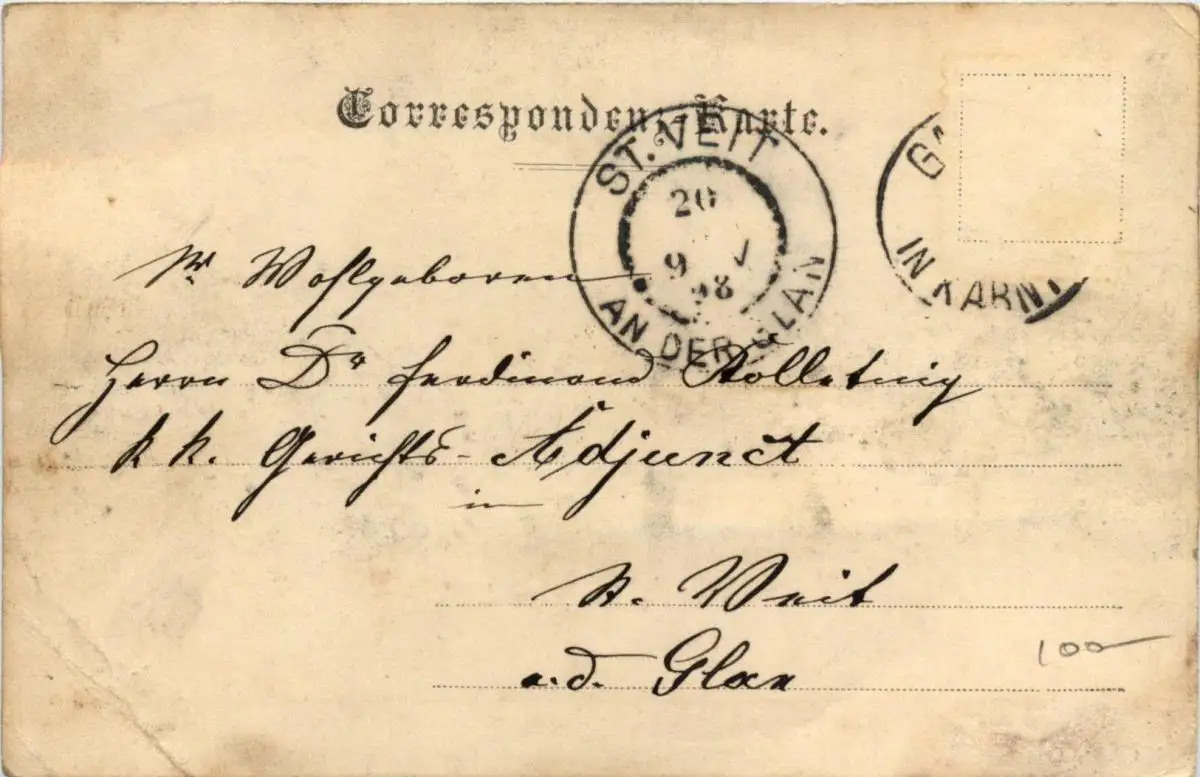 Correspondenz-Karte.
ST. VEIT
20
9
98
AN DER GLAN
IN KÄRN
Sr. Wohlgeboren
Herrn Dr Ferdinand Kolletnig
k k. Gerichts-Adjunct
in
St. Veit
a. d. Glan
100